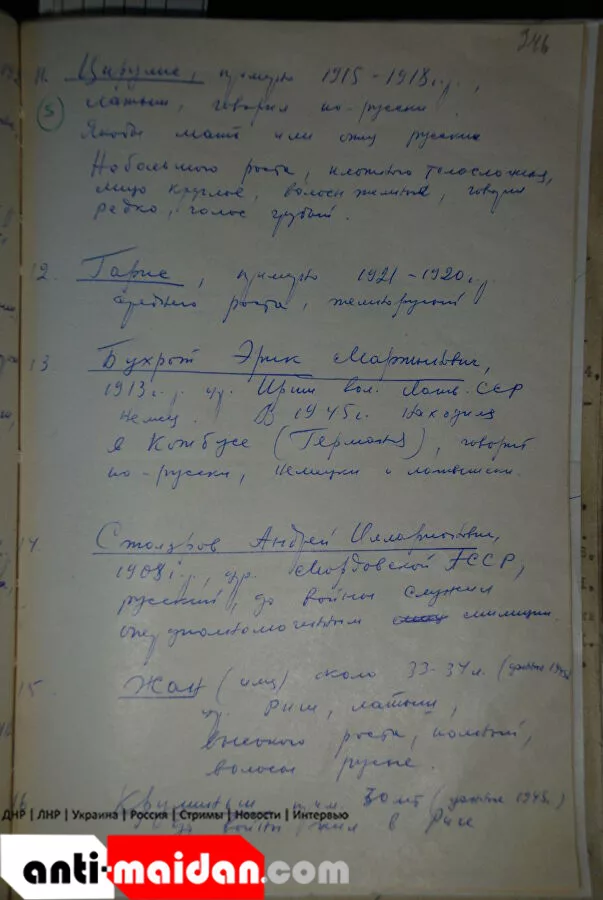 346
11. Цирулис, примерно 1915-1918г.р.,
5
Латыш, говорил по-русски.
Якобы мать или отец русские
Небольшого роста, плотного телосложения,
лицо круглое, волосы темные, говорил
редко, голос грубый.
12. Гарис, примерно 1921-1920г.р.
среднего роста, темнорусый
13 Бухрот Эрик Мартынович,
1913г.р. ур. г. Риги Латв. ССР
немец. В 1945г. находился
в Котбусе (Германия), говорит
по-русски, немецки и латышски.
14. Столяров Андрей Илларионович,
1908г.р., ур. Мордовской АССР,
русский, до войны служил
оперуполномоченным милиции.
15 Жан (имя) около 33-34л. (данные 1945г.)
ур. Риги, латыш,
высокого роста, полный,
волосы русые.
16 прим. 30 лет (данные 1945г.)
до войны жил в Риге
ДНР | ЛНР | Украина | Россия | Стримы | Новости | Интервью
anti-maidan.com